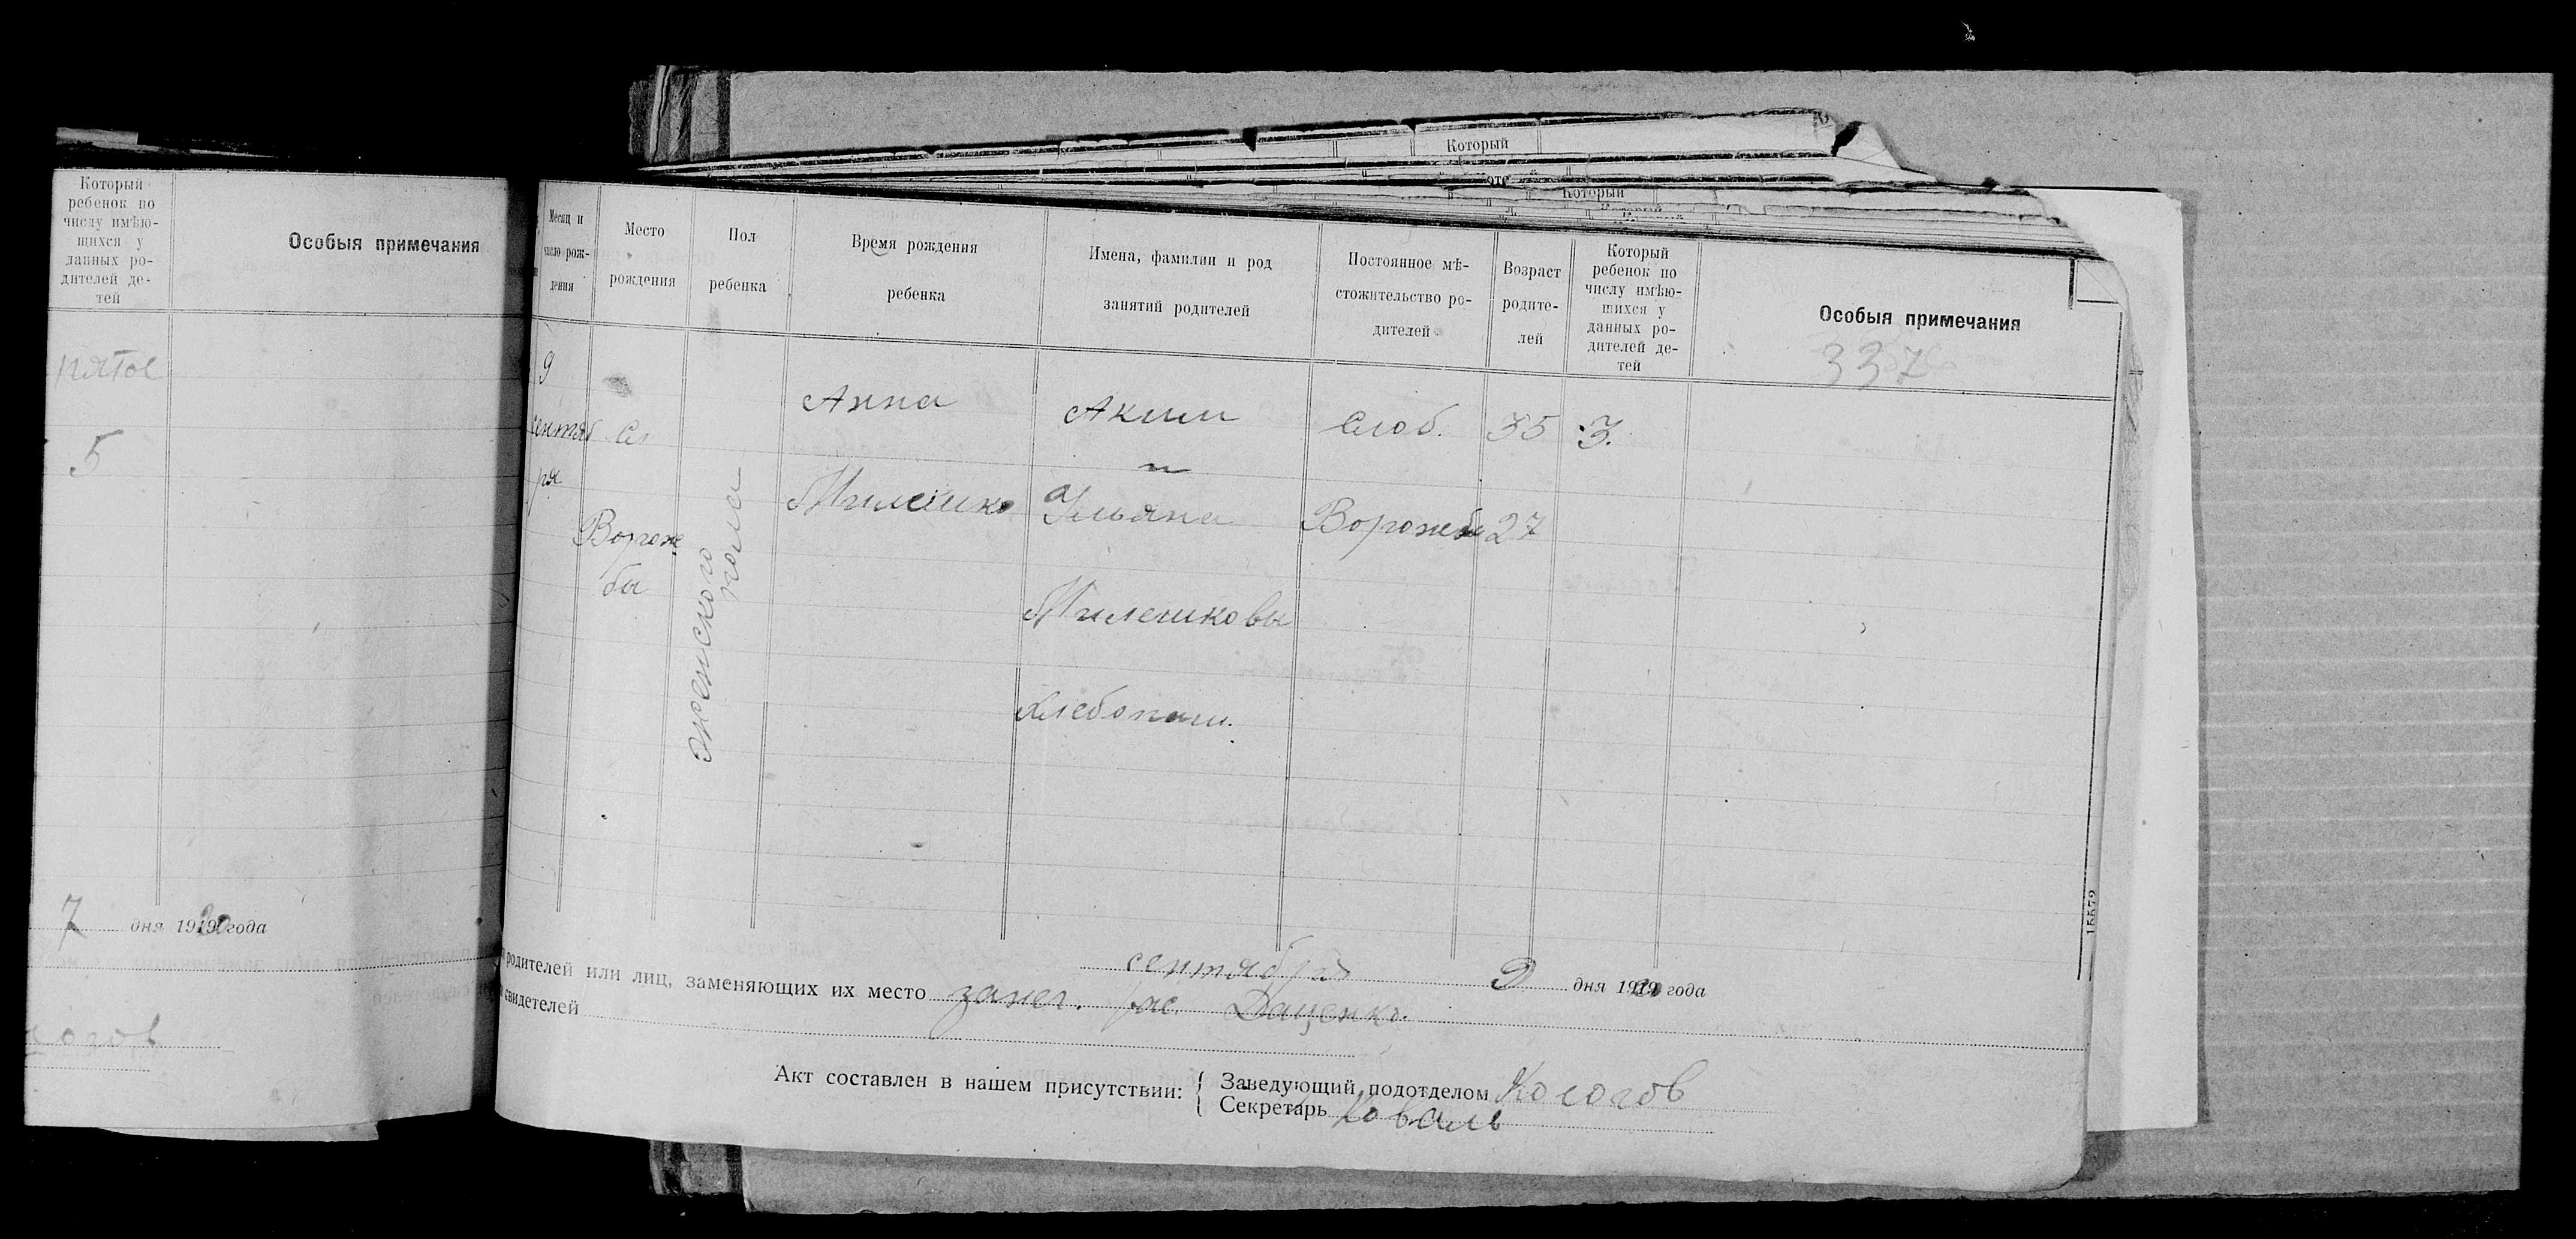 Который
Который
Который
ребенок по
числу имѣю-
щихся у
данных ро-
дителей де-
тей
Особыя примечания
пятое
5
7 дня 1920 года
Месяц и
число рож-
дения
Место
рождения
Пол
ребенка
Время рождения
ребенка
Имена, фамилии и род
занятий родителей
Постоянное мѣ-
стожительство ро-
дителей
Возраст
родите-
лей
Который
ребенок по
числу имѣю-
щихся у
данных ро-
дителей де-
тей
Особыя примечания
337
9
сентяб
ря
Сл
Вороже
бы
женского
пола
Анна
Милешко
Аким
и
Ульяна
Милешковы
хлебопаш.
Слоб.
Ворожбы
35
27
3.
сентября 9 дня 1920 года
родителей или лиц, заменяющих их место
свидетелей
Даценко.
Акт составлен в нашем присутствии:
Заведующий подотделом Косогов
Секретарь Коваль
15579